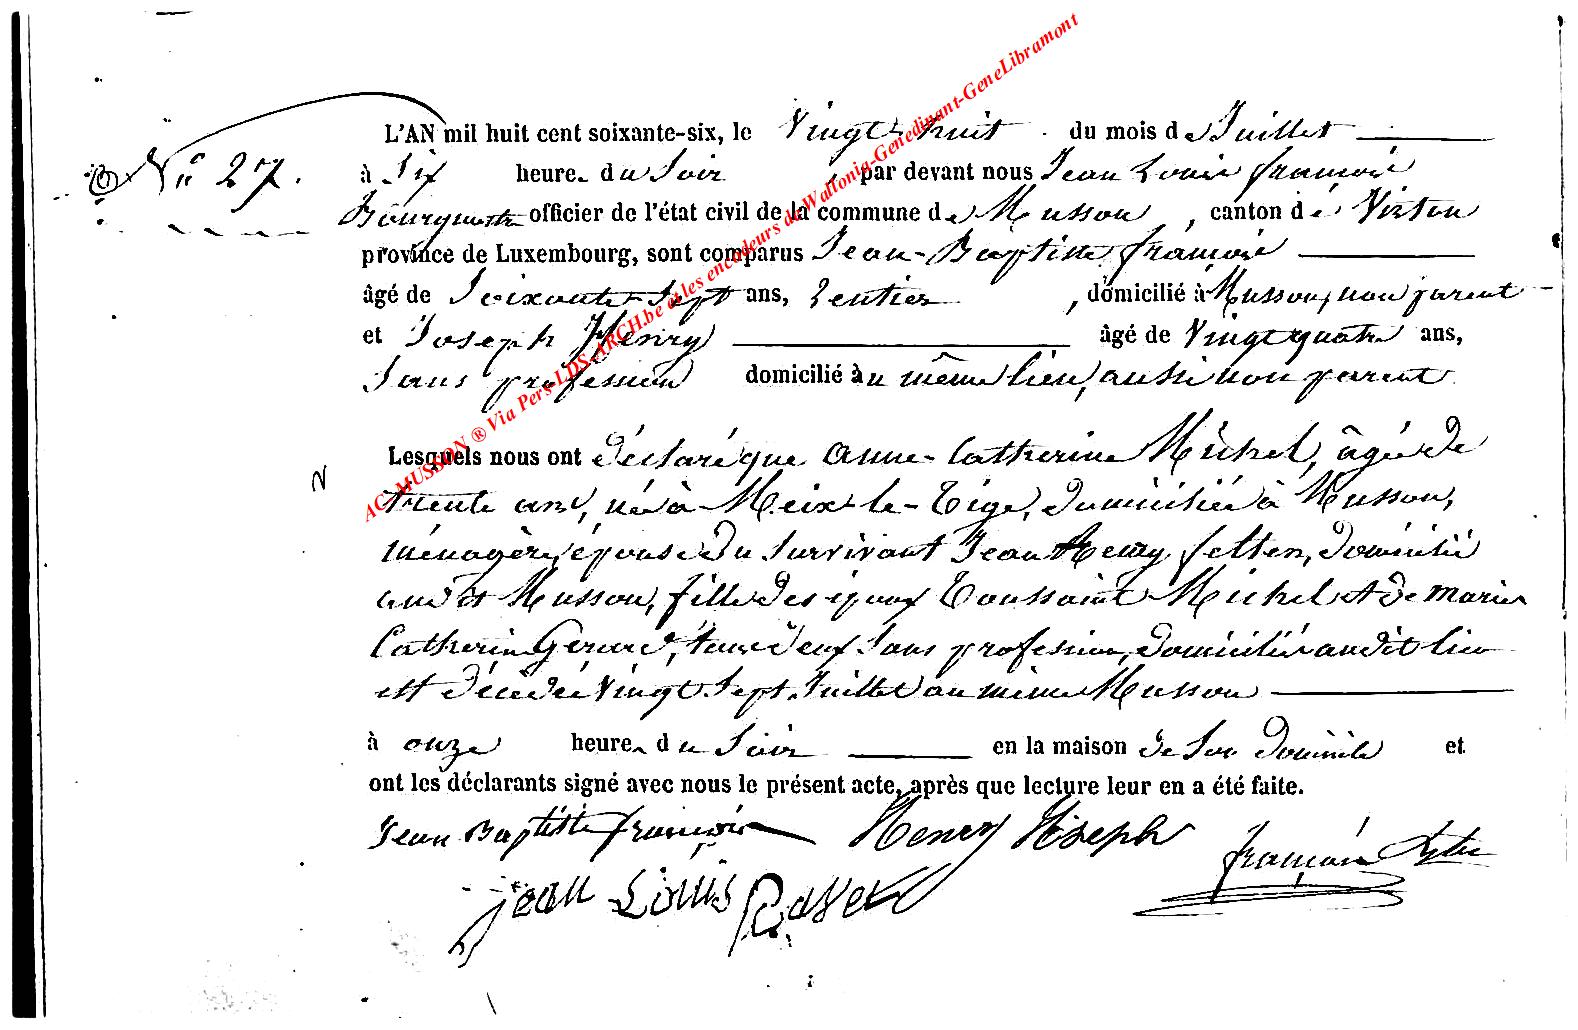 N° 27.
L'AN mil huit cent soixante-six, le Vingt-huit du mois de Juillet
à Six heure du Soir, par devant nous Jean Louis françois
officier de l'état civil de la commune de Musson, canton de Virton
province de Luxembourg, sont comparus Jean-Baptiste françois
âgé de Soixante-Sept ans, Rentier, domicilié à Musson, non parent
et Joseph Henry âgé de Vingt quatre ans,
Sans profession domicilié au même lieu, aussi non parent
Lesquels nous ont déclaré que Anne-Catherine Michel, âgée de
trente ans, née à Meix-le-Tige, domiciliée à Musson,
ménagère, épouse du Survivant Jean Henry felten, domicilié
audit Musson, fille des époux Toussaint Michel et de Marie
Catherine Gérard, tous deux Sans profession, domiciliés audit lieu
est décédée Vingt Sept Juillet au même Musson
à onze heure du Soir en la maison de Son domicile et
ont les déclarants signé avec nous le présent acte, après que lecture leur en a été faite.
Jean Baptiste françois Henry Joseph françois
Jean Louis
AC-MUSSON ® Via Pers-LDS-ARCH.be et les encodeurs de Wallonia-Genedinant-GeneLibramont